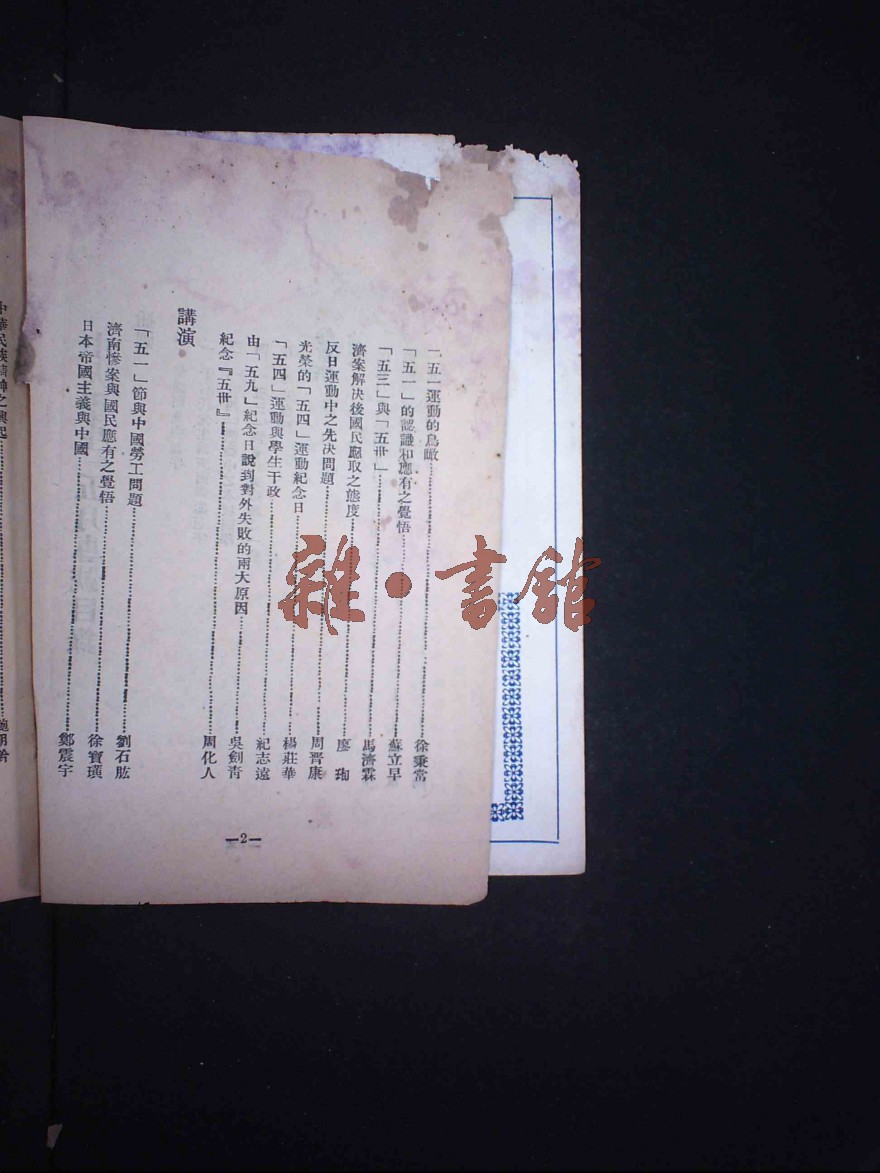 「五一運動的鳥瞰……徐秉常
「五一」的認識和應有之覺悟……蘇立早
「五三」與「五卅」……馬濟霖
濟案解決後國民應取之態度……廖珣
反日運動中之先決問題……周晉康
光榮的「五四」運動紀念日……楊莊華
「五四」運動與學生干政……紀志遠
由「五九」紀念日說到對外失敗的兩大原因……吳劍青
紀念『五卅』……周化人
講演
「五一」節與中國勞工問題……劉石肱
濟南慘案與國民應有之覺悟……徐寶璜
日本帝國主義與中國……鄭震宇
中華民族精神之興起……
—2—
雜·書館